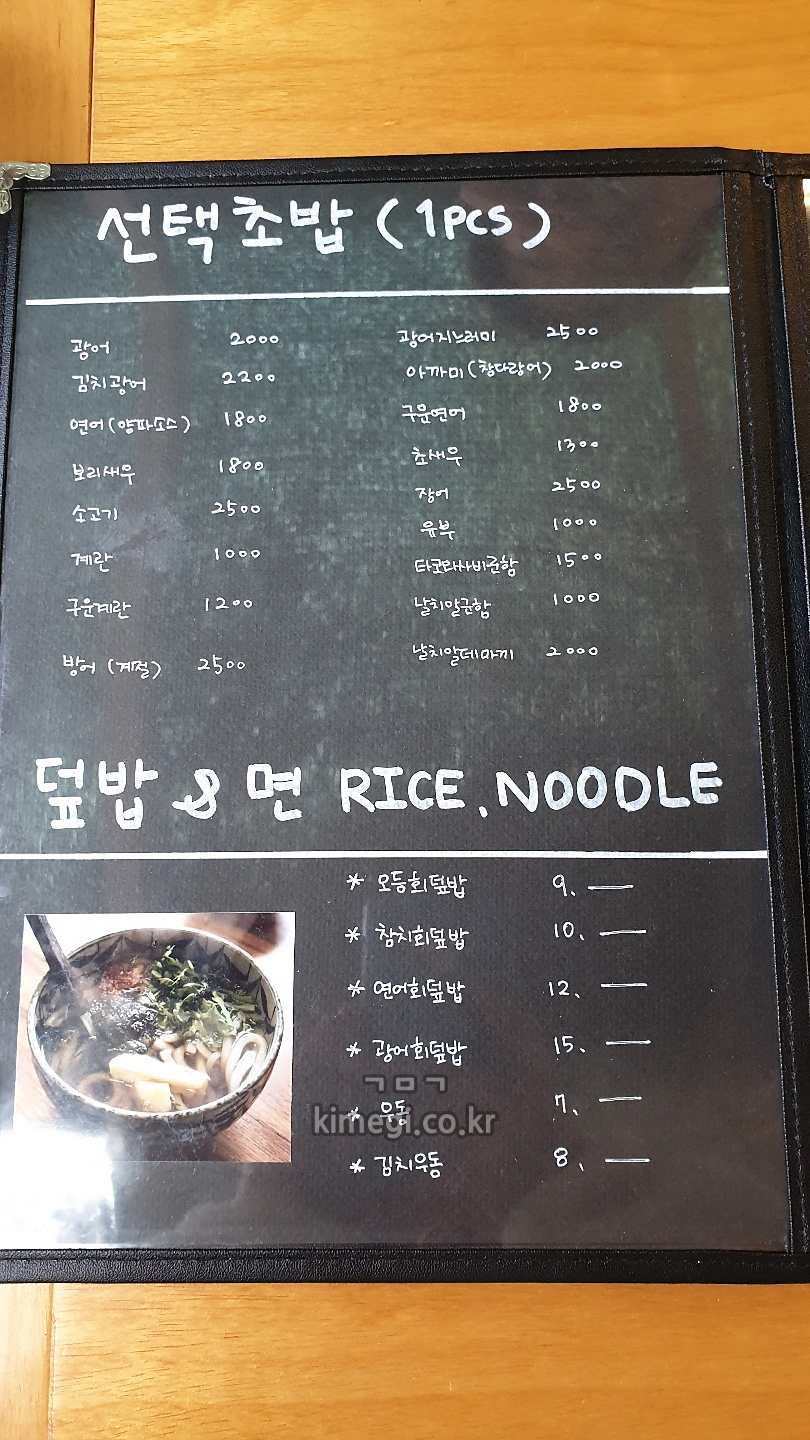 선택초밥 (1pcs)
광어 2000
김치광어 2200
연어(양파소스) 1800
보리새우 1800
소고기 2500
계란 1000
구운계란 1200
방어 (계절) 2500
광어지느러미 2500
아까미(참다랑어) 2000
구운연어 1800
초새우 1300
장어 2500
유부 1000
타코와사비군함 1500
날치알군함 1000
날치알데마끼 2000
덮밥 & 면 RICE, NOODLE
* 모듬회덮밥 9, —
* 참치회덮밥 10, —
* 연어회덮밥 12, —
* 광어회덮밥 15, —
* 우동 7, —
* 김치우동 8, —
ㄱㅁㄱ
kimegi.co.kr